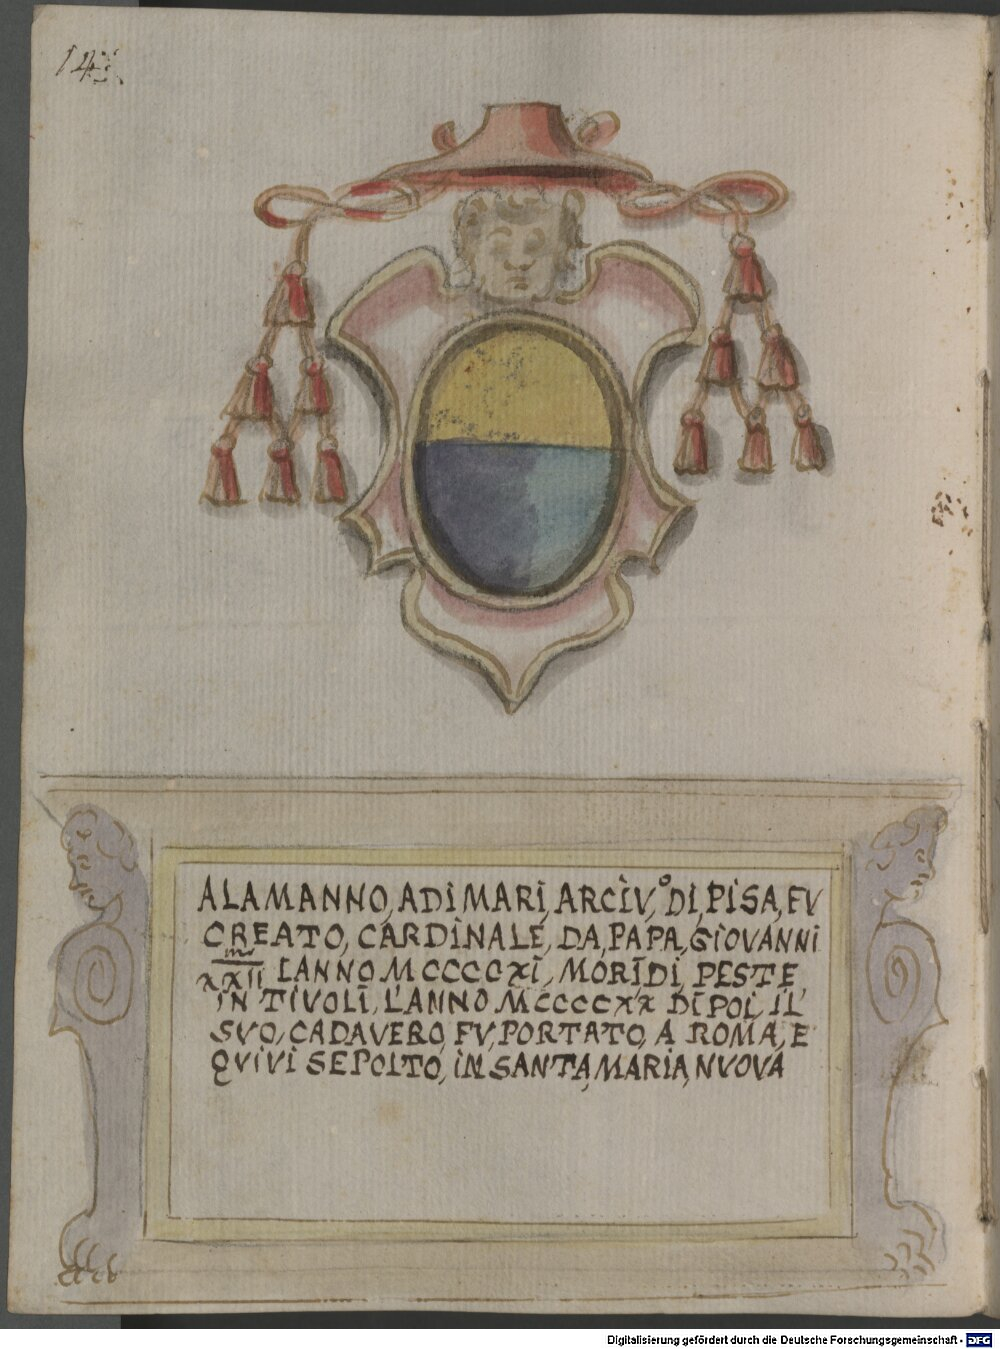 ALAMANNO, ADIMARI, ARCIV,º DI, PISA, FV
CREATO, CARDINALE, DA, PAPA, GIOVANNI
XXII LANNO MCCCCXI, MORIDI, PESTE,
IN TIVOLI, L'ANNO MCCCCXX DIPOI, IL'
SVO, CADAVERO, FV, PORTATO, A ROMA, E
QVIVI SEPOLTO, IN SANTA, MARIA, NVOVA
Digitalisierung gefördert durch die Deutsche Forschungsgemeinschaft - DFG